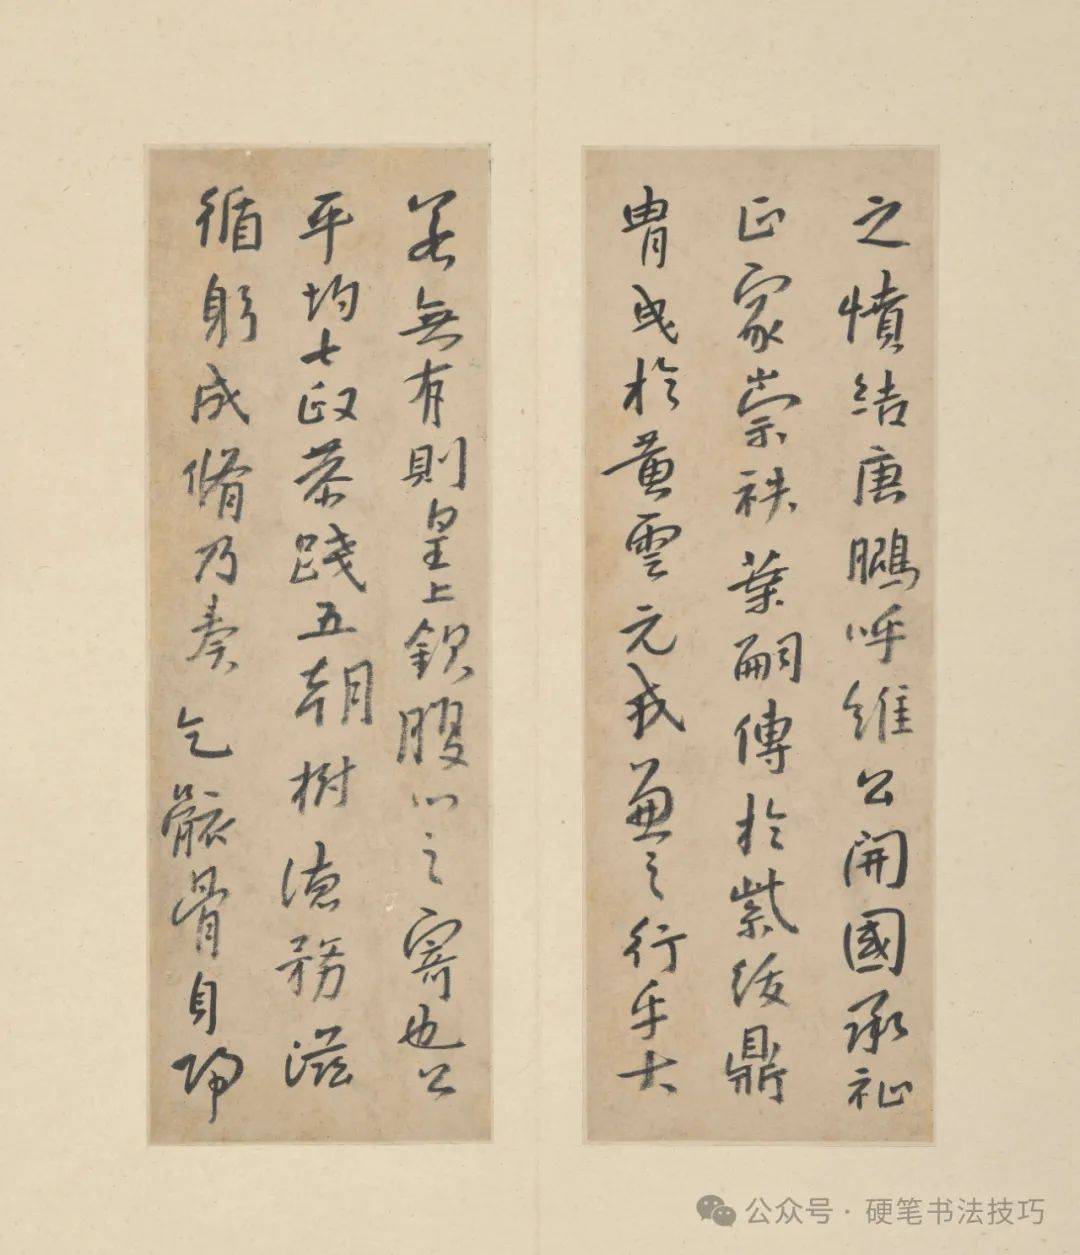 之憤結唐鵬呼維公開國承祉
正家崇秩葉嗣傳於紫綬鼎
胄成於黄雲元戎兼之行乎大
若無有則皇上欽腹心之寄也公
平均七政恭踐五朝樹德務滋
循躬成脩乃奏乞骸骨自陳
公众号·硬笔书法技巧